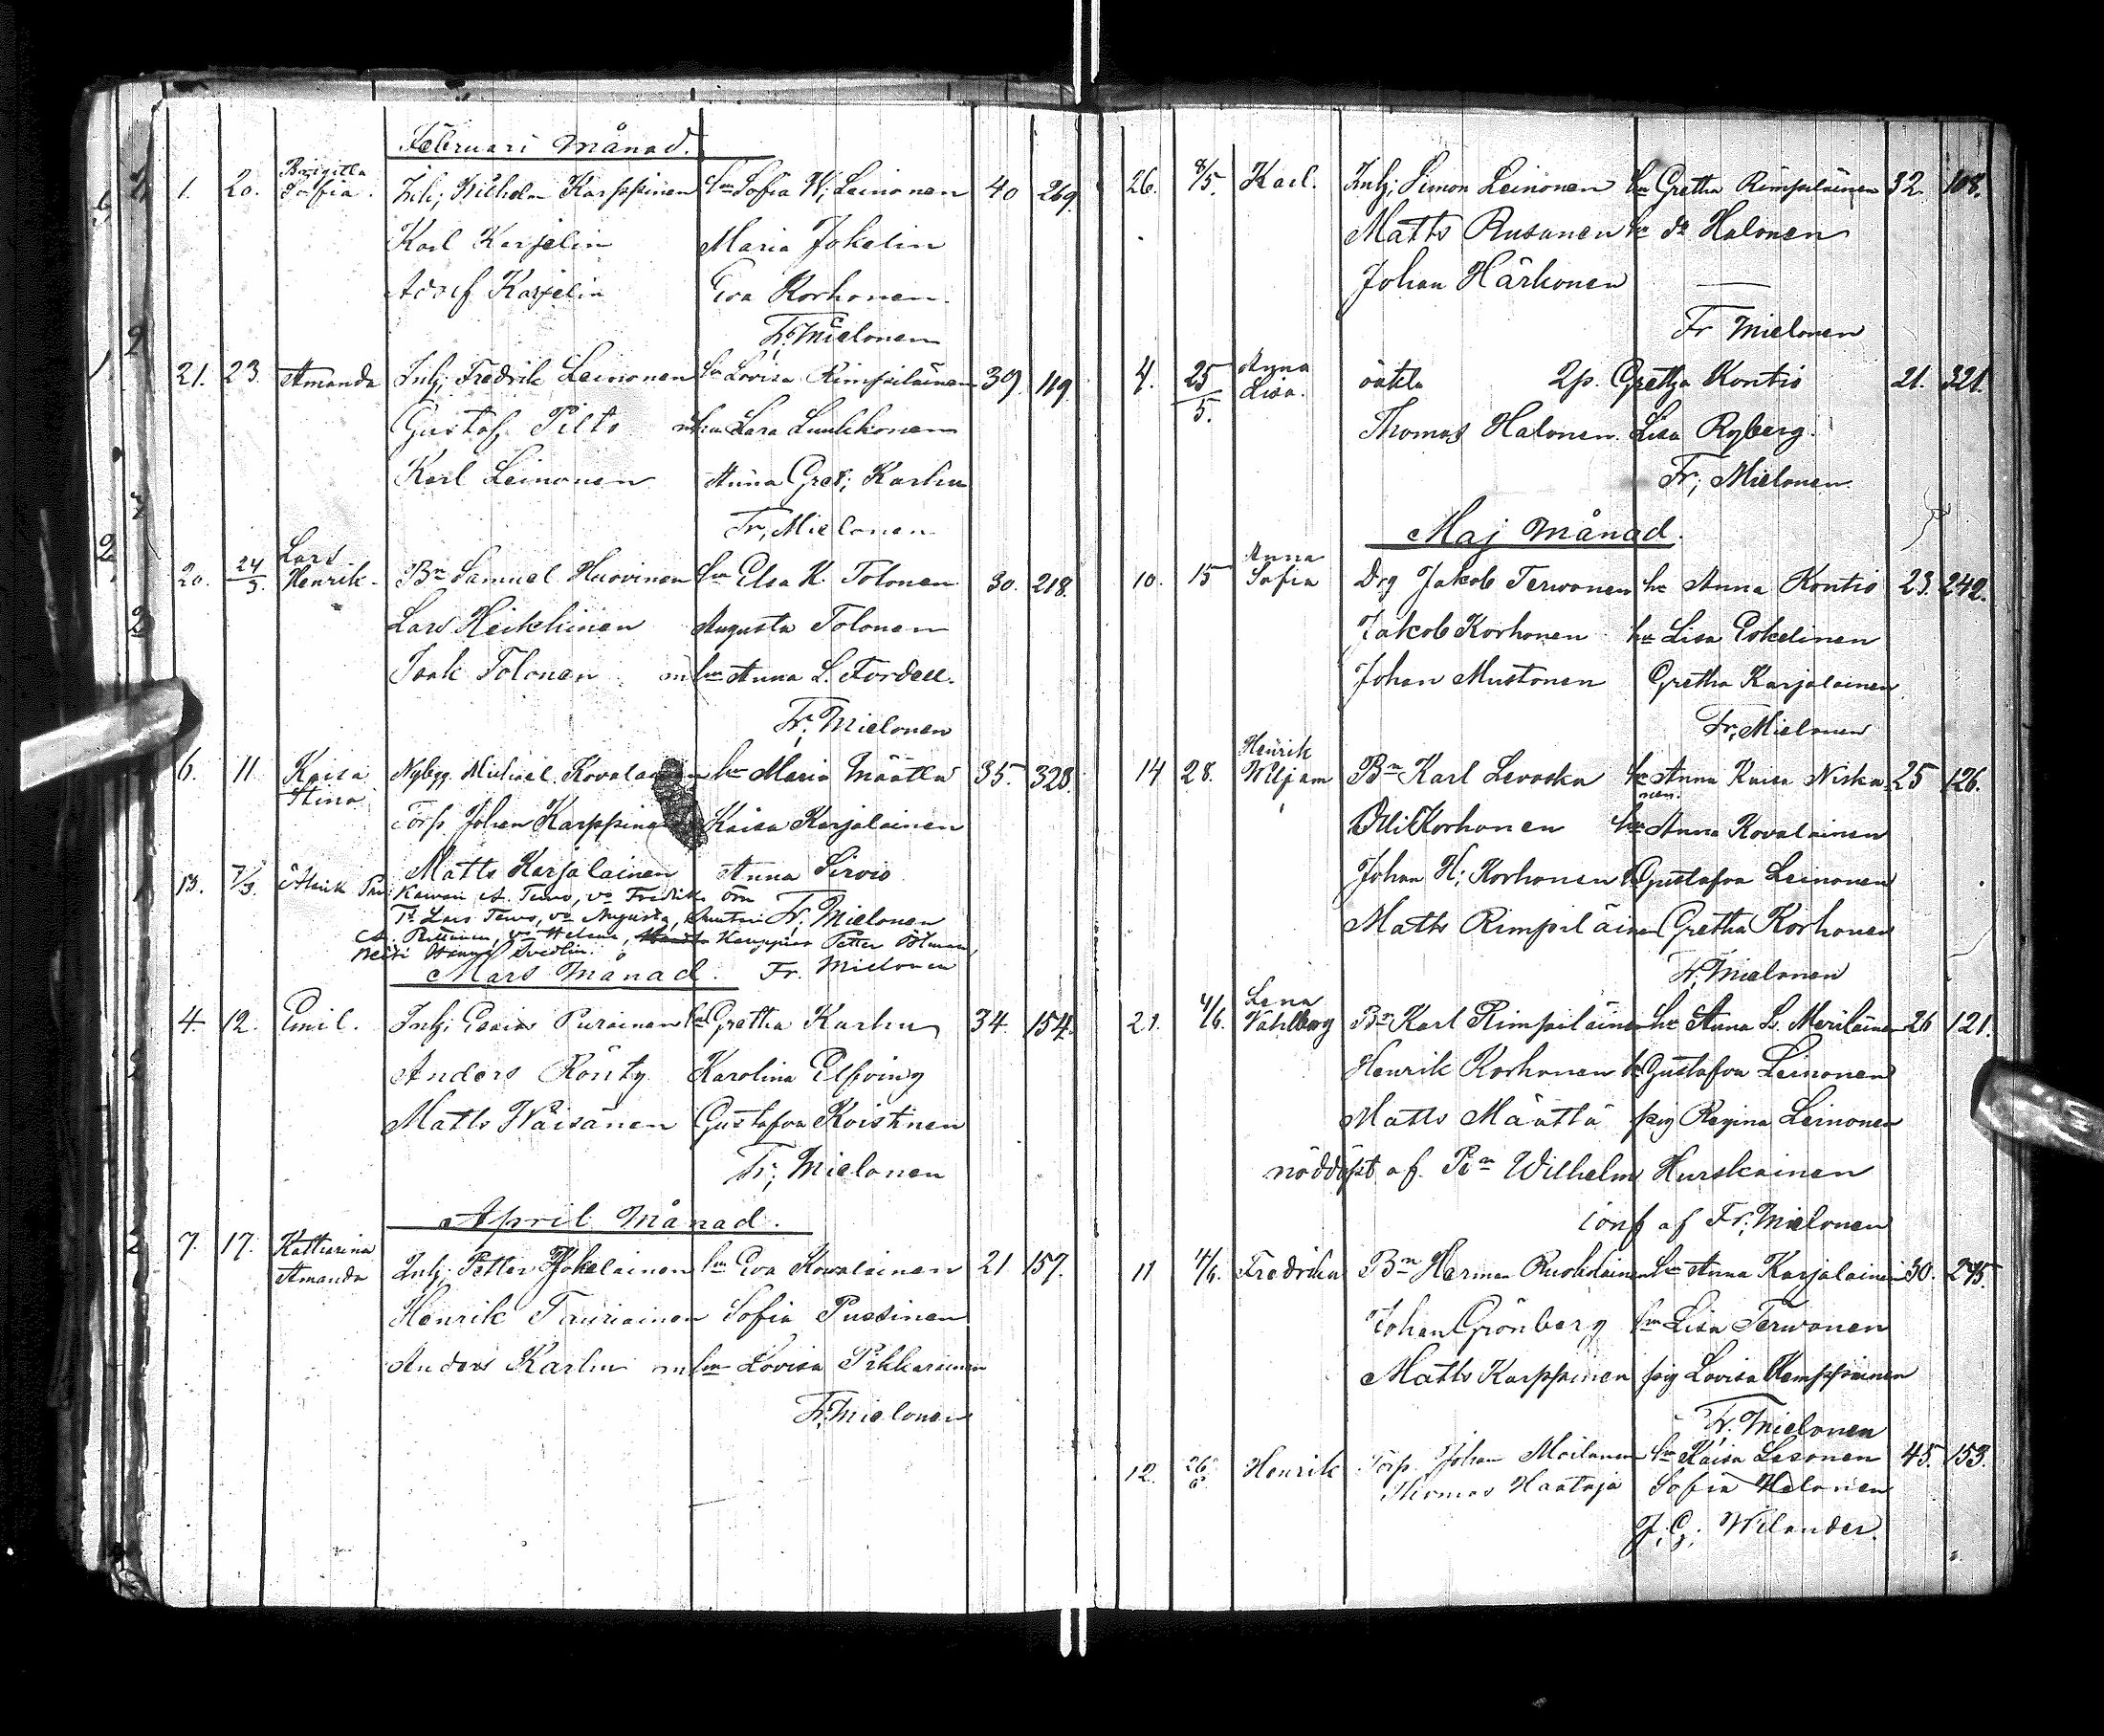 Februari Månad.
1. 20. Brigitta Sofia. Inh; Wilhelm Karppinen hu Sofia W; Leinonen 40 269.
Karl Karjelin Maria Jokelin
Adolf Karjelin Eva Korhonen.
Fr; Mielonen
21. 23. Amanda Inh; Fredrik Leinonen hu Lovisa Rimpiläinen 39. 119.
Gustaf Pilto Lara Luukkonen
Karl Leinonen Anna Gret; Karhu
Fr; Mielonen
20. 24/3. Lars Henrik. Bn Samuel Huovinen hu Elsa K. Tolonen 30. 218.
Lars Heikkinen Augusta Tolonen
Isak Tolonen m hu Anna L. Fordell.
Fr; Mielonen
6. 11. Kaisa Stina Nybygg. Michael Kovalainen hu Maria Määttä 35. 328.
Torp. Johan Karppinen Kaisa Karjalainen
Matts Karjalainen Anna Sirviö
13. 7/3. Kawan A. Tervo, vo Fredrik
T. Lars Tervo, vo Augusta, Fr; Mielonen
vo Helena, Petter Öhman,
Mars Månad. Fr. Mielonen
4. 12. Emil. Inh; Esaias Purainen hu Gretha Karhu 34. 154.
Anders Rönty Karolina Elfving
Matts Wäisänen Gustafva Koistinen
Fr; Mielonen
April Månad.
7. 17. Katharina Amanda Inh; Petter Jokelainen hu Eva Kovalainen 21 157.
Henrik Tauriainen Sofia Pussinen
Anders Karhu m hu Lovisa Pikkarainen
Fr; Mielonen
26. 8/5. Karl. Inh; Simon Leinonen hu Gretha Rimpiläinen 32. 108.
Matts Rusanen hu do Halonen
Johan Härkonen
Fr Mielonen
4. 25/5. Anna Lisa. oäkta 2p. Gretha Kontio 21. 321.
Thomas Halonen. Lisa Ryberg.
Fr; Mielonen.
Maj Månad.
10. 15 Anna Sofia Drg Jakob Terwonen hu Anna Kontio 23. 242.
Jakob Korhonen hu Lisa Eskelinen
Johan Mustonen Gretha Karjalainen
Fr; Mielonen
14 28. Henrik Wiljam Bn Karl Levoska hu Anna Kaisa Niskanen. 25 126.
Olli Korhonen hu Anna Kovalainen
Johan H; Korhonen Gustafva Leinonen
Matts Rimpiläinen Gretha Korhonen
Fr; Mielonen
21. 4/6. Lena Vahlborg Bn Karl Rimpiläinen hu Anna L. Meriläinen 26 121.
Henrik Korhonen hu Gustafva Leinonen
Matts Määttä pig Regina Leinonen
nöddöpt af Wilhelm Hurskainen
conf af Fr; Mielonen
11 4/6. Fredrika Bn Herman Ruskolainen hu Anna Karjalainen 30. 245.
Johan Grönberg hu Lisa Terwonen
Matts Karppinen pig Lovisa Kemppainen
Fr; Mielonen
12. 26/6 Henrik Torp. Johan Moilanen hu Kaisa Lesonen 45. 153.
Thomas Haataja Sofia Halonen
J. G; Wilander.